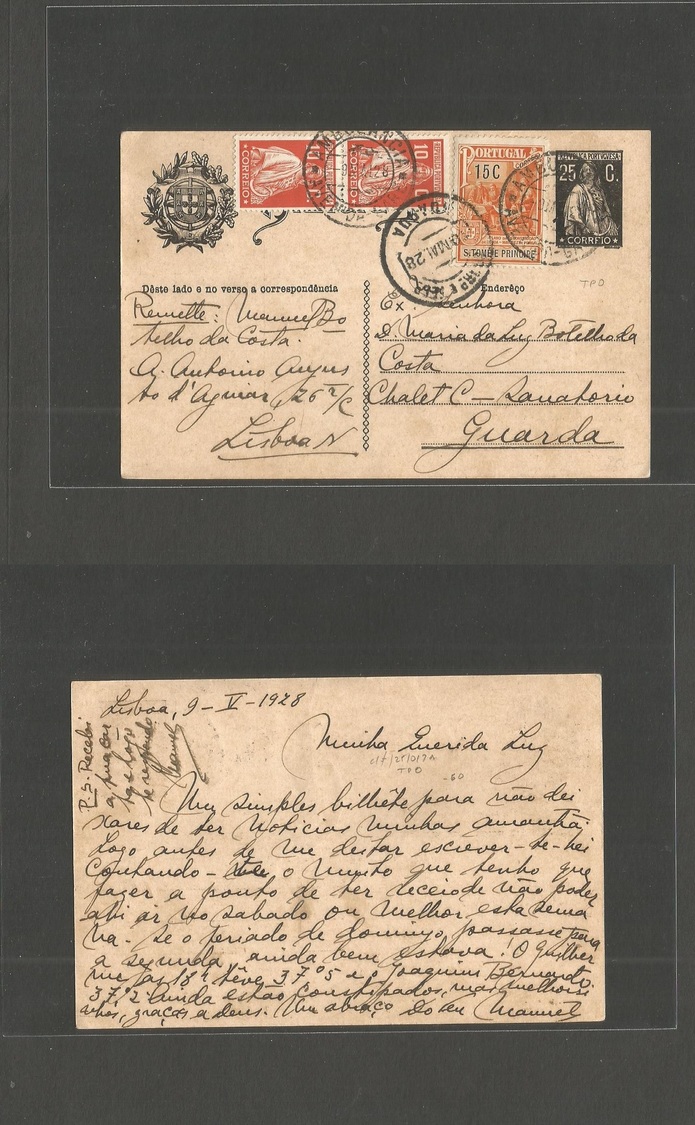 10 C.
CORREIO
10 C.
CORREIO
AMBULANCIA
PORTUGAL
15C
S.TOMÉ E PRINCIPE
REPUBLICA PORTUGUESA
25 C.
CORREIO
MAI. 28
TPO
Dêste lado e no verso a correspondência
Remette: Manuel Bo
telho da Costa.
A. Antonio Augus
to d'Aguiar, 26
Lisboa N
Endereço
Ex Senhora
D. Maria da Luz Botelho da
Costa
Chalet C — Sanatorio
Guarda
Lisboa, 9-V-1928
P.S. Recebi
Manuel
Minha Querida Luz
TPO
-60
Um simples bilhête para não dei
xares de ter noticias minhas amanhã.
Logo antes de me deitar escrever-te-hei
contando-te o muito que tenho que
fazer a ponto de ter receio de não poder
ahi ir no sabado ou melhor esta sema
na. Se o feriado de domingo, passasse para
a segunda, ainda bem estava! O Guilher
me ás 18h têve 37º5 e o Joaquim Bernardo
37,º2 ainda estão constipados, mas melhorsi
nhos, graças a Deus. Um abraço do teu Manuel